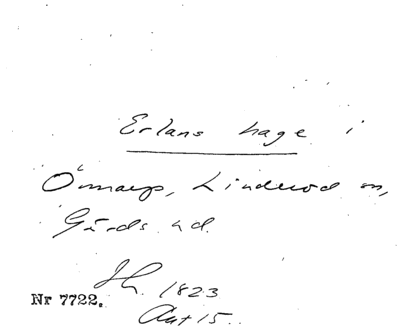 Erlans hage i
Önnarp, Linderöd sn,
Gärds hd.
Jh. 1823
Akt 15.
Nr 7722.